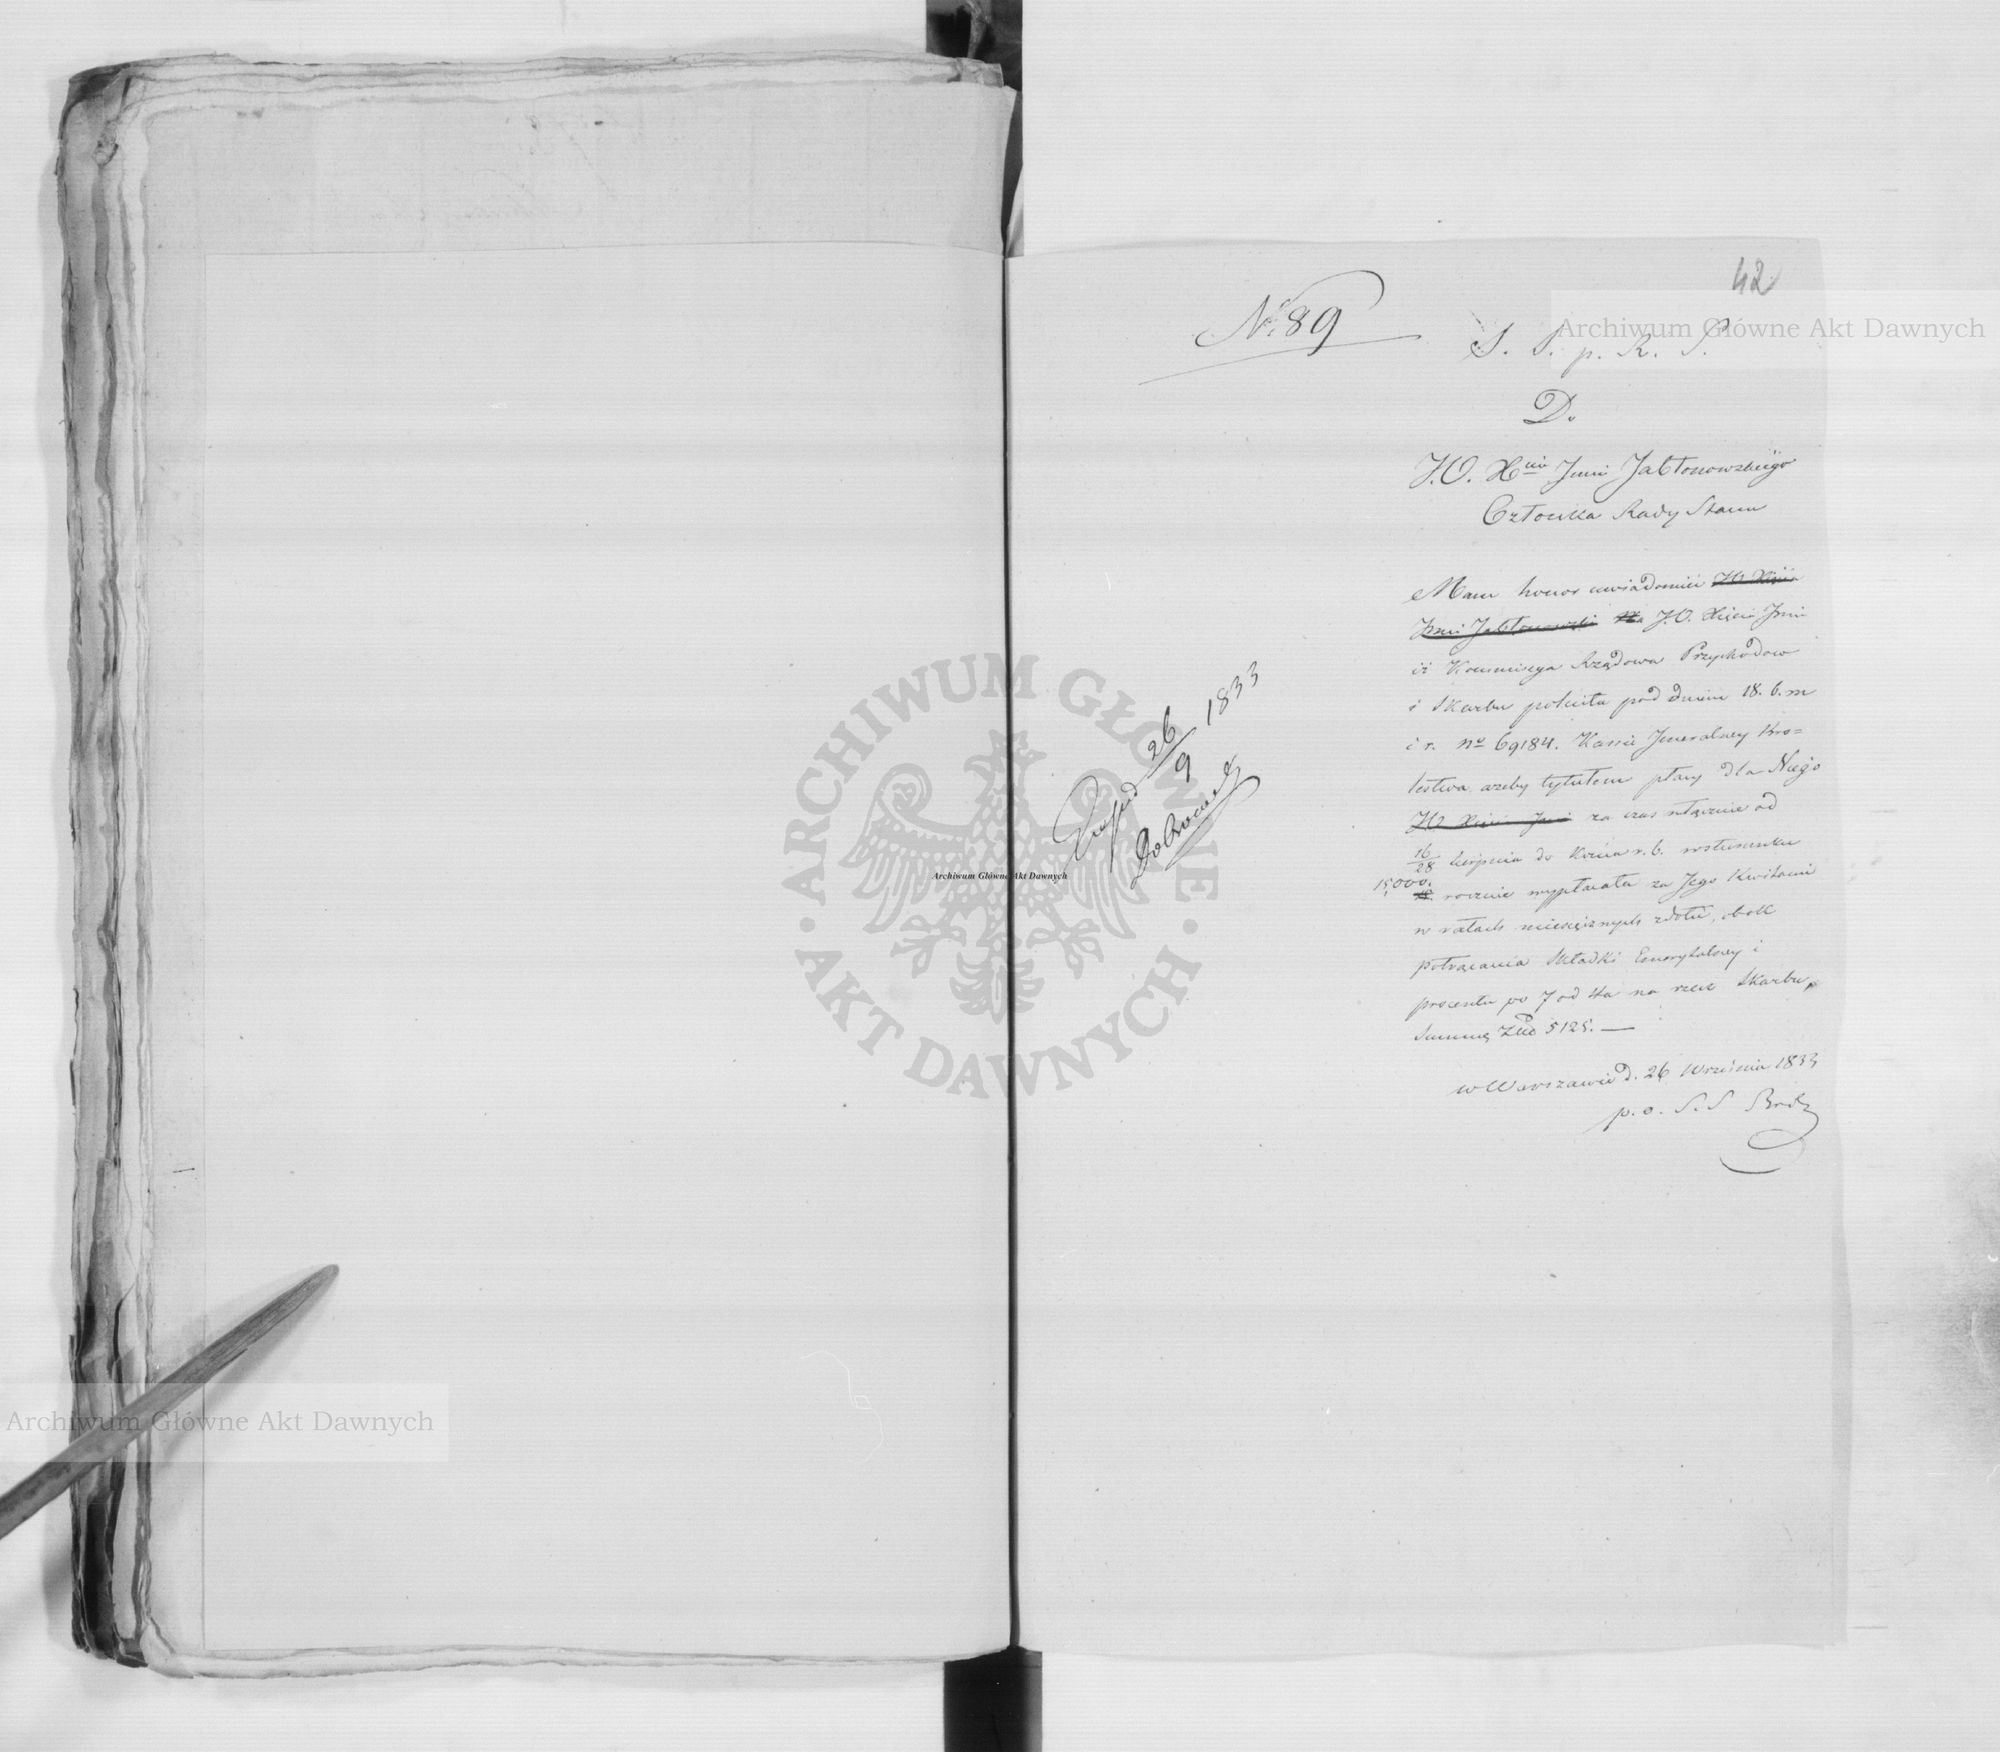 42
No 89
S. S. p. R. S.
D.
J.O. Xcia Jmci Jabłonowskiego
Członka Rady Stanu
Mam honor uwiadomić JO Xięcia
Jmci Jabłonowski J.O. Xięcia Jmci
iż Kommissya Rządowa Przychodow
i Skarbu poleciła pod dniem 18. b. m
i r. No 69184. Kassie Jeneralney Kro=
lestwa ażeby tytułem płacy dla Niego
JO Xięcia Jmci za czas włącznie od
16/28 Sierpnia do Końca r. b. w stosunku
15,000. rocznie wypłacała za Jego Kwitami
w ratach miesięcznych zdołu, obok
potrącania Składki Emerytalney i
procentu po 7 od sta na rzecz Skarbu,
Summę Złp 5125. —
w Warszawie d. 26 Września 1833
p. o. S. S
26/9 1833
Archiwum Główne Akt Dawnych
Archiwum Główne Akt Dawnych
Archiwum Główne Akt Dawnych
ARCHIWUM GŁÓWNE
AKT DAWNYCH